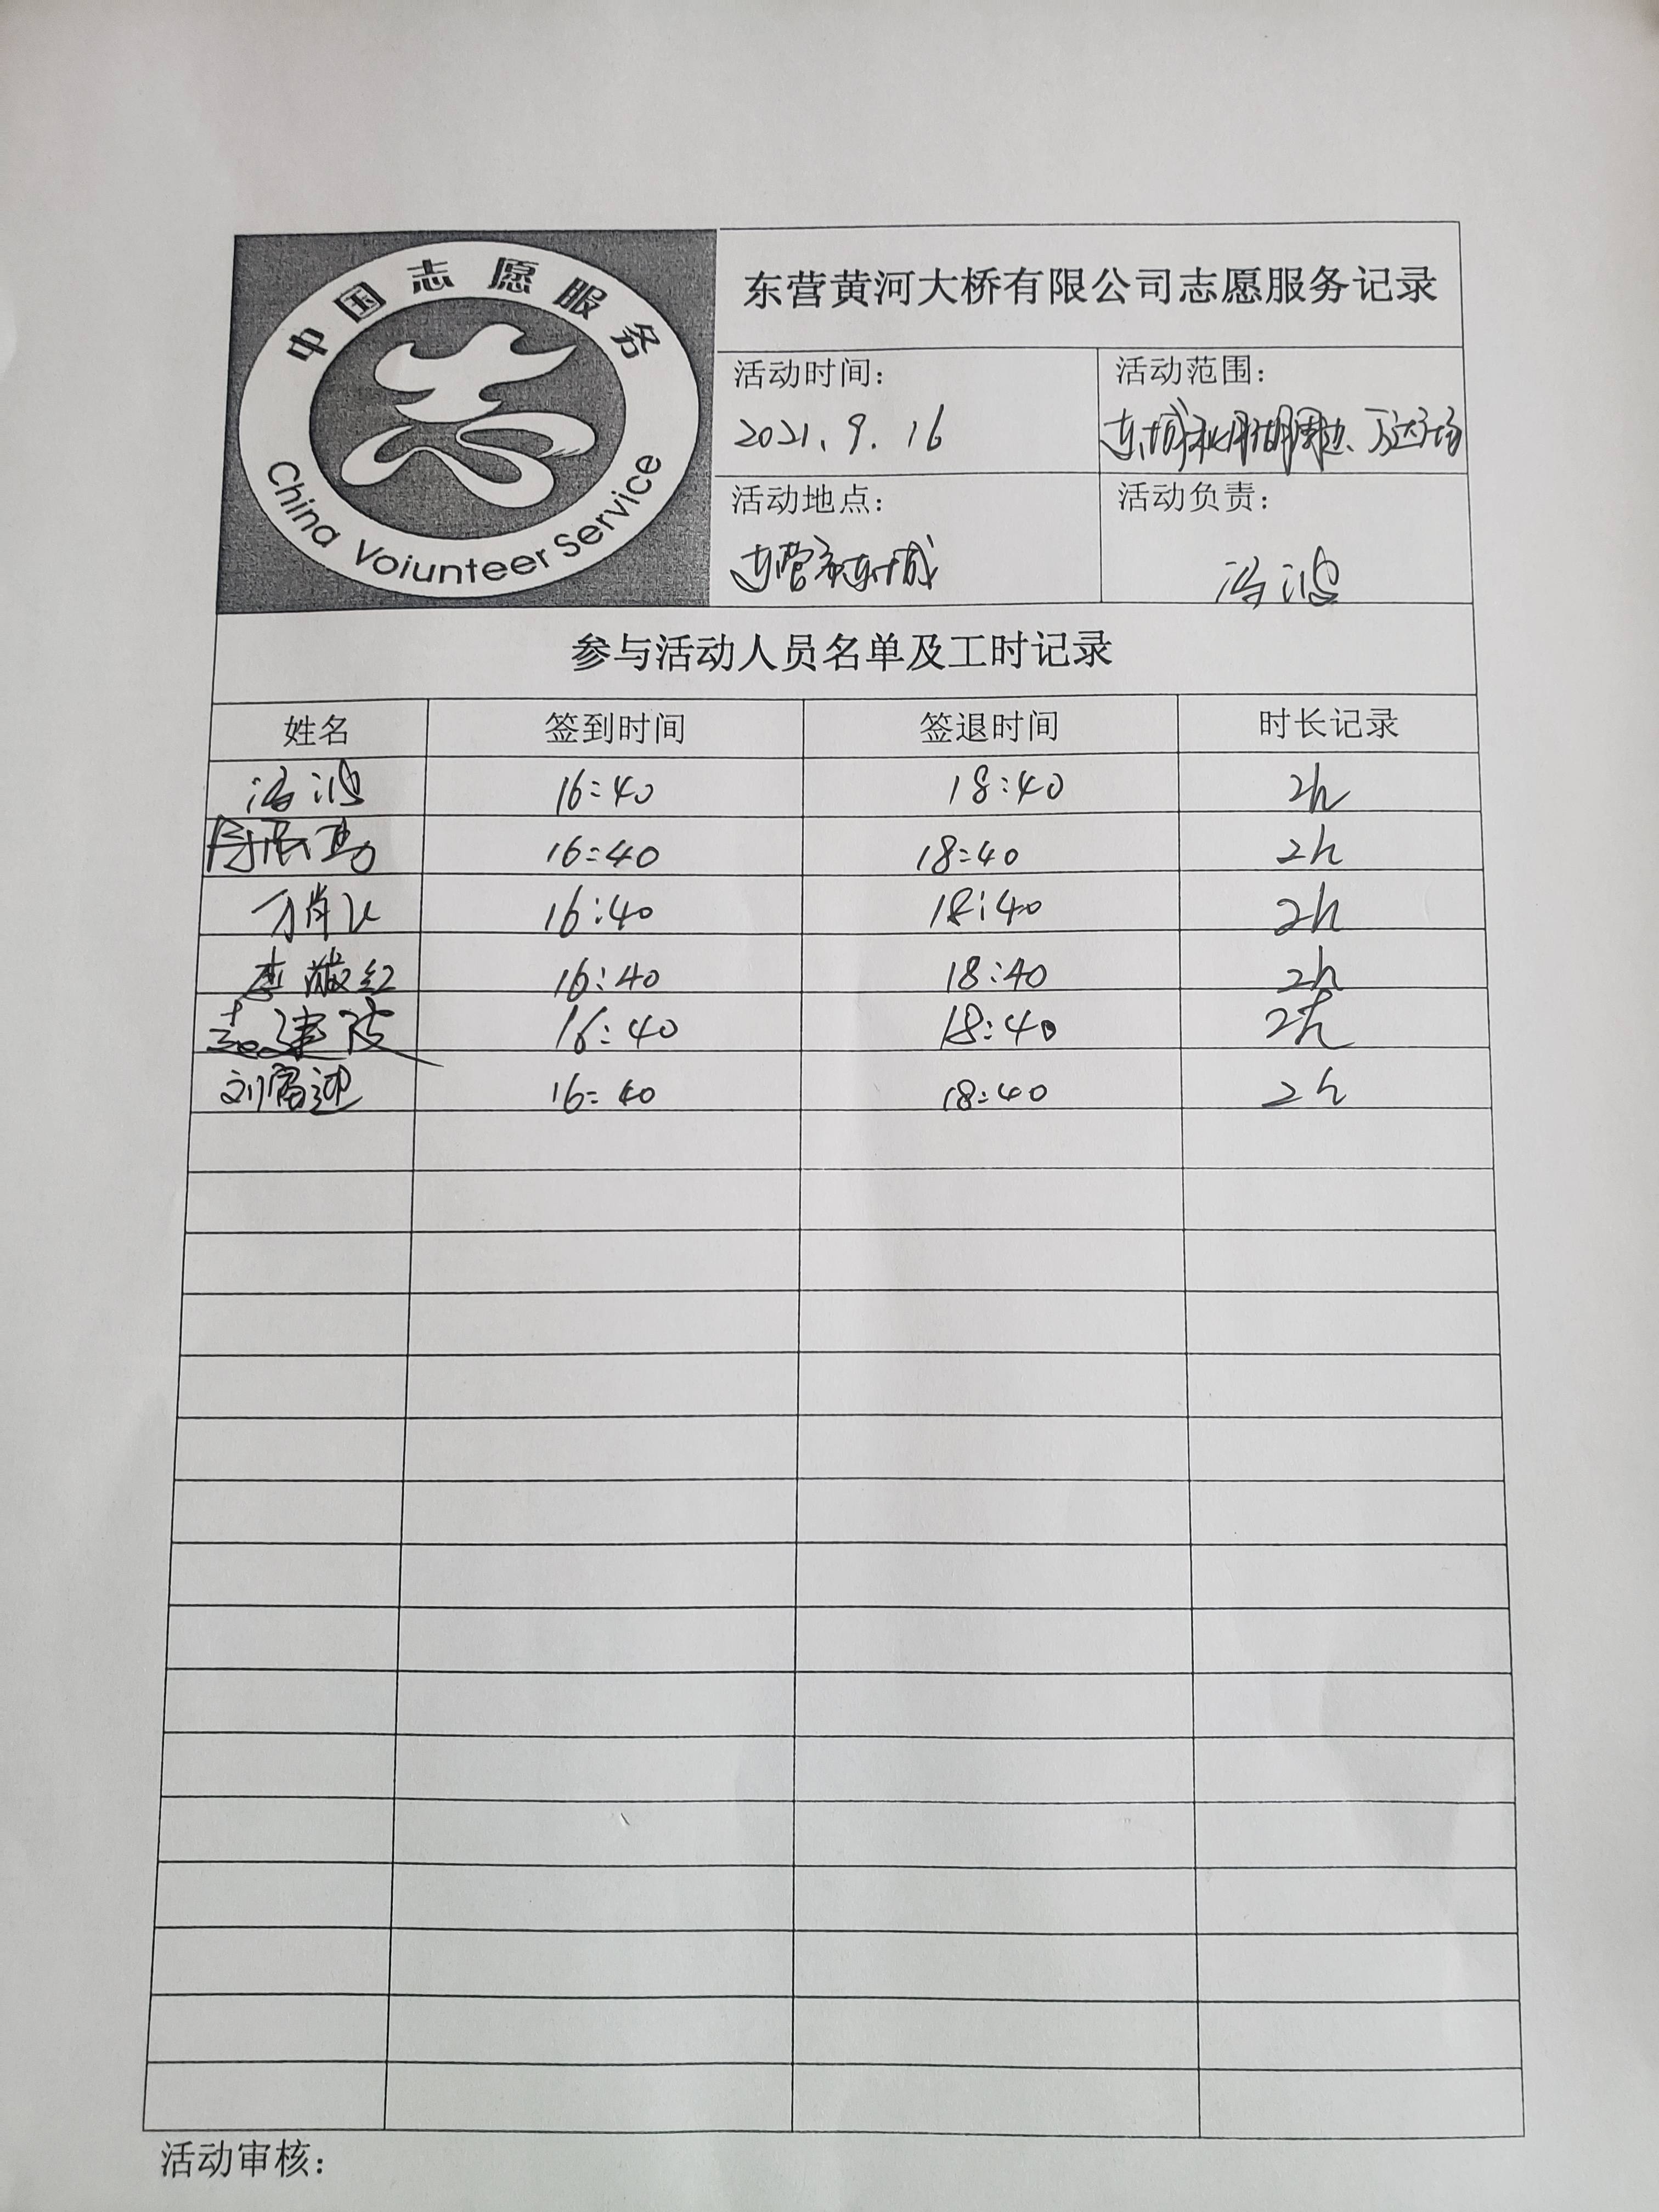 中国志愿服务
China Voiunteer Service
东营黄河大桥有限公司志愿服务记录
活动时间： 活动范围：
2021.9.16 东城秋月湖周边、万达广场
活动地点： 活动负责：
东营市东城
参与活动人员名单及工时记录
姓名 签到时间 签退时间 时长记录
16:40 18:40 2h
16:40 18:40 2h
16:40 18:40 2h
李 红 16:40 18:40 2h
建波 16:40 18:40 2h
刘富迎 16:40 18:40 2h
活动审核：